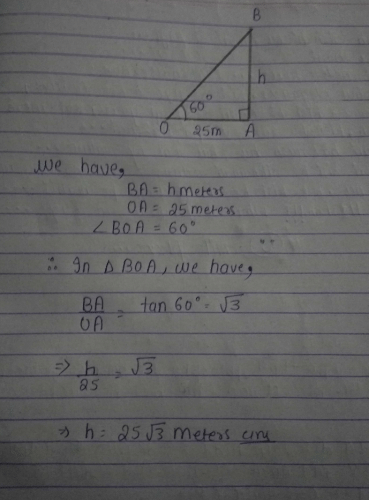 B
h
60°
O 25m A
We have,
BA = h meters
OA = 25 meters
∠BOA = 60°
∴ In △BOA, we have,
BA/OA = tan 60° = √3
⇒ h/25 = √3
⇒ h = 25√3 meters